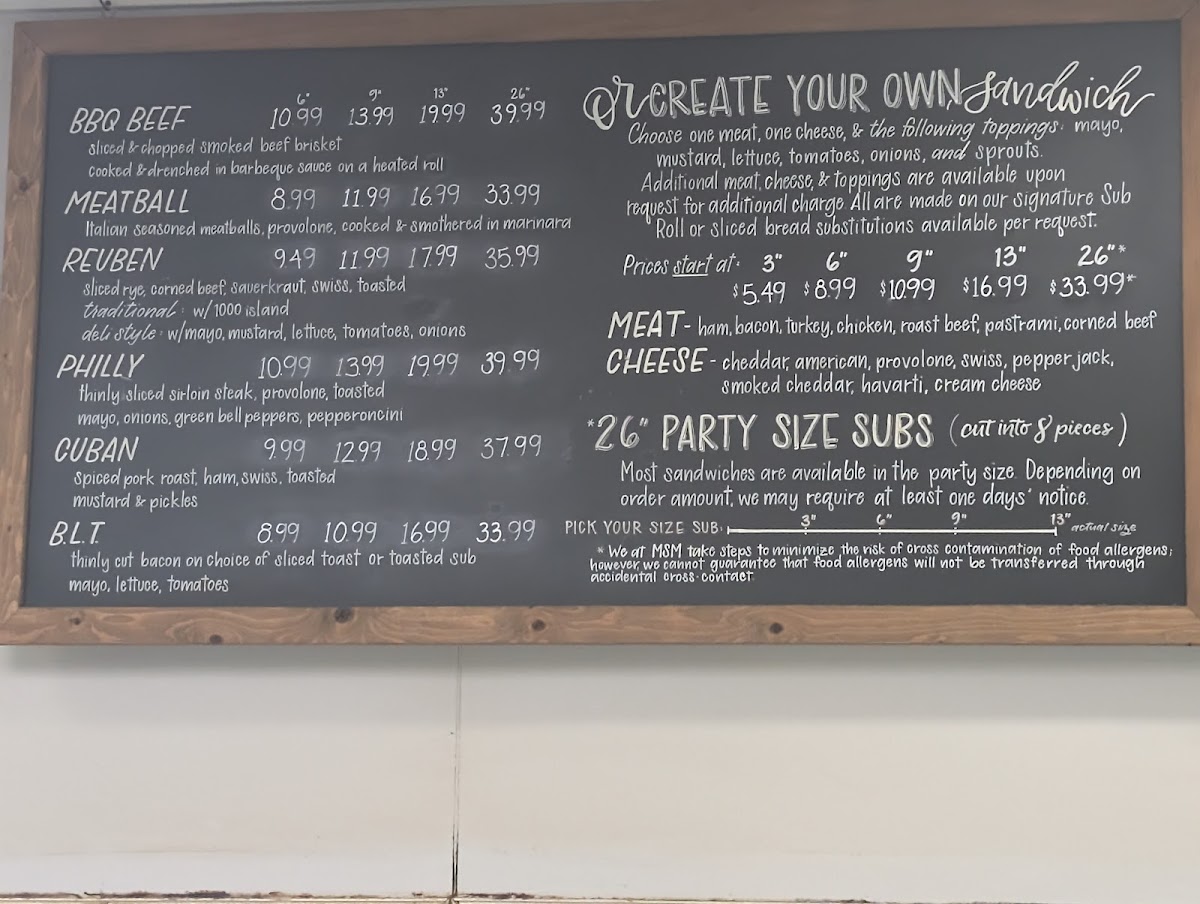 6" 9" 13" 26"
BBQ BEEF 10.99 13.99 19.99 39.99
sliced & chopped smoked beef brisket
cooked & drenched in barbeque sauce on a heated roll
MEATBALL 8.99 11.99 16.99 33.99
Italian seasoned meatballs, provolone, cooked & smothered in marinara
REUBEN 9.49 11.99 17.99 35.99
sliced rye, corned beef, sauerkraut, swiss, toasted
traditional: w/1000 island
deli style: w/mayo, mustard, lettuce, tomatoes, onions
PHILLY 10.99 13.99 19.99 39.99
thinly sliced sirloin steak, provolone, toasted
mayo, onions, green bell peppers, pepperoncini
CUBAN 9.99 12.99 18.99 37.99
spiced pork roast, ham, swiss, toasted
mustard & pickles
B.L.T. 8.99 10.99 16.99 33.99
thinly cut bacon on choice of sliced toast or toasted sub
mayo, lettuce, tomatoes
or CREATE YOUR OWN sandwich
Choose one meat, one cheese, & the following toppings: mayo,
mustard, lettuce, tomatoes, onions, and sprouts.
Additional meat, cheese, & toppings are available upon
request for additional charge. All are made on our signature Sub
Roll or sliced bread substitutions available per request.
Prices start at: 3" 6" 9" 13" 26"*
$5.49 $8.99 $10.99 $16.99 $33.99*
MEAT - ham, bacon, turkey, chicken, roast beef, pastrami, corned beef
CHEESE - cheddar, american, provolone, swiss, pepper jack,
smoked cheddar, havarti, cream cheese
*26" PARTY SIZE SUBS (cut into 8 pieces)
Most sandwiches are available in the party size. Depending on
order amount, we may require at least one days' notice.
PICK YOUR SIZE SUB: 3" 6" 9" 13" actual size
* We at MSM take steps to minimize the risk of cross contamination of food allergens;
however, we cannot guarantee that food allergens will not be transferred through
accidental cross-contact.